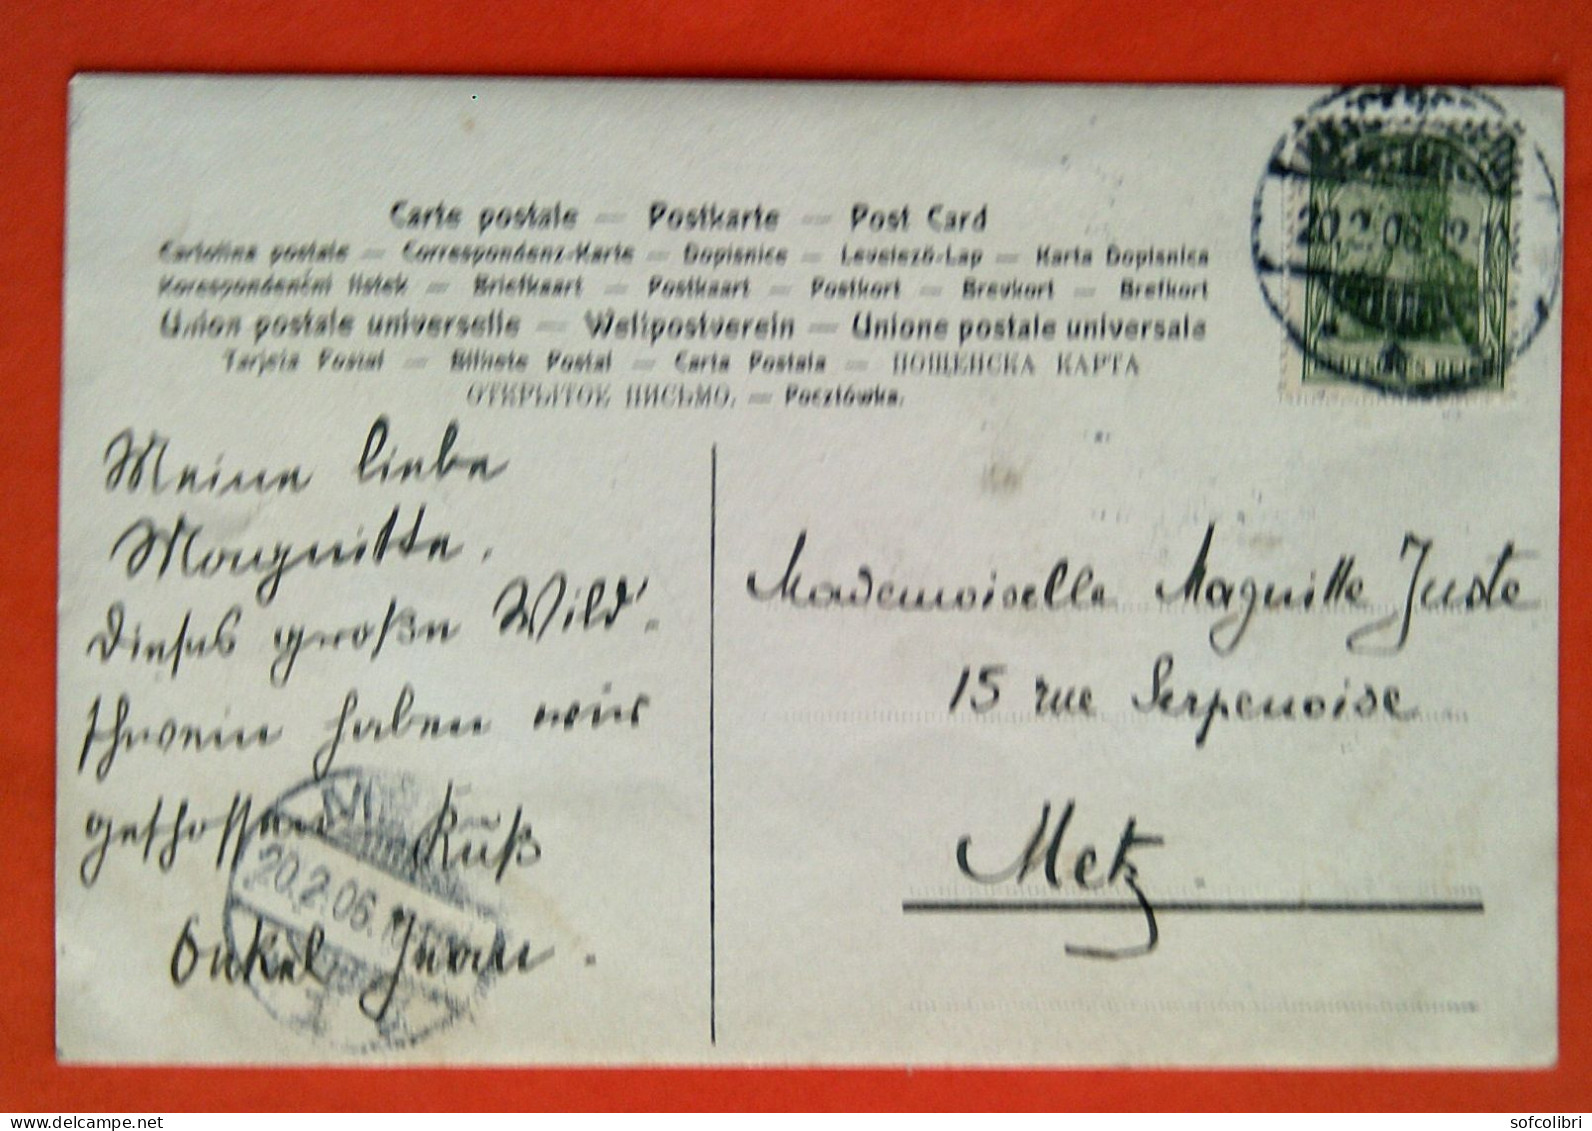 Carte postale — Postkarte — Post Card
Cartolina postale — Correspondenz-Karte — Dopisnice — Levelező-Lap — Karta Dopisnica
Korespondenční lístek — Briefkaart — Postkaart — Postkort — Brevkort — Brefkort
Union postale universelle — Weltpostverein — Unione postale universale
Tarjeta Postal — Bilhete Postal — Carta Postala — ПОЩЕНСКА КАРТА
ОТКРЫТОЕ ПИСЬМО. — Pocztówka.
20.2.06
DEUTSCHES REICH
Meine liebe
Marguitte.
Dieses große Wild-
schwein haben wir
geschossen Kuß
Onkel
20.2.06.
Mademoiselle Maguitte Juste
15 rue Serpenoise
Metz.
sofcolibri